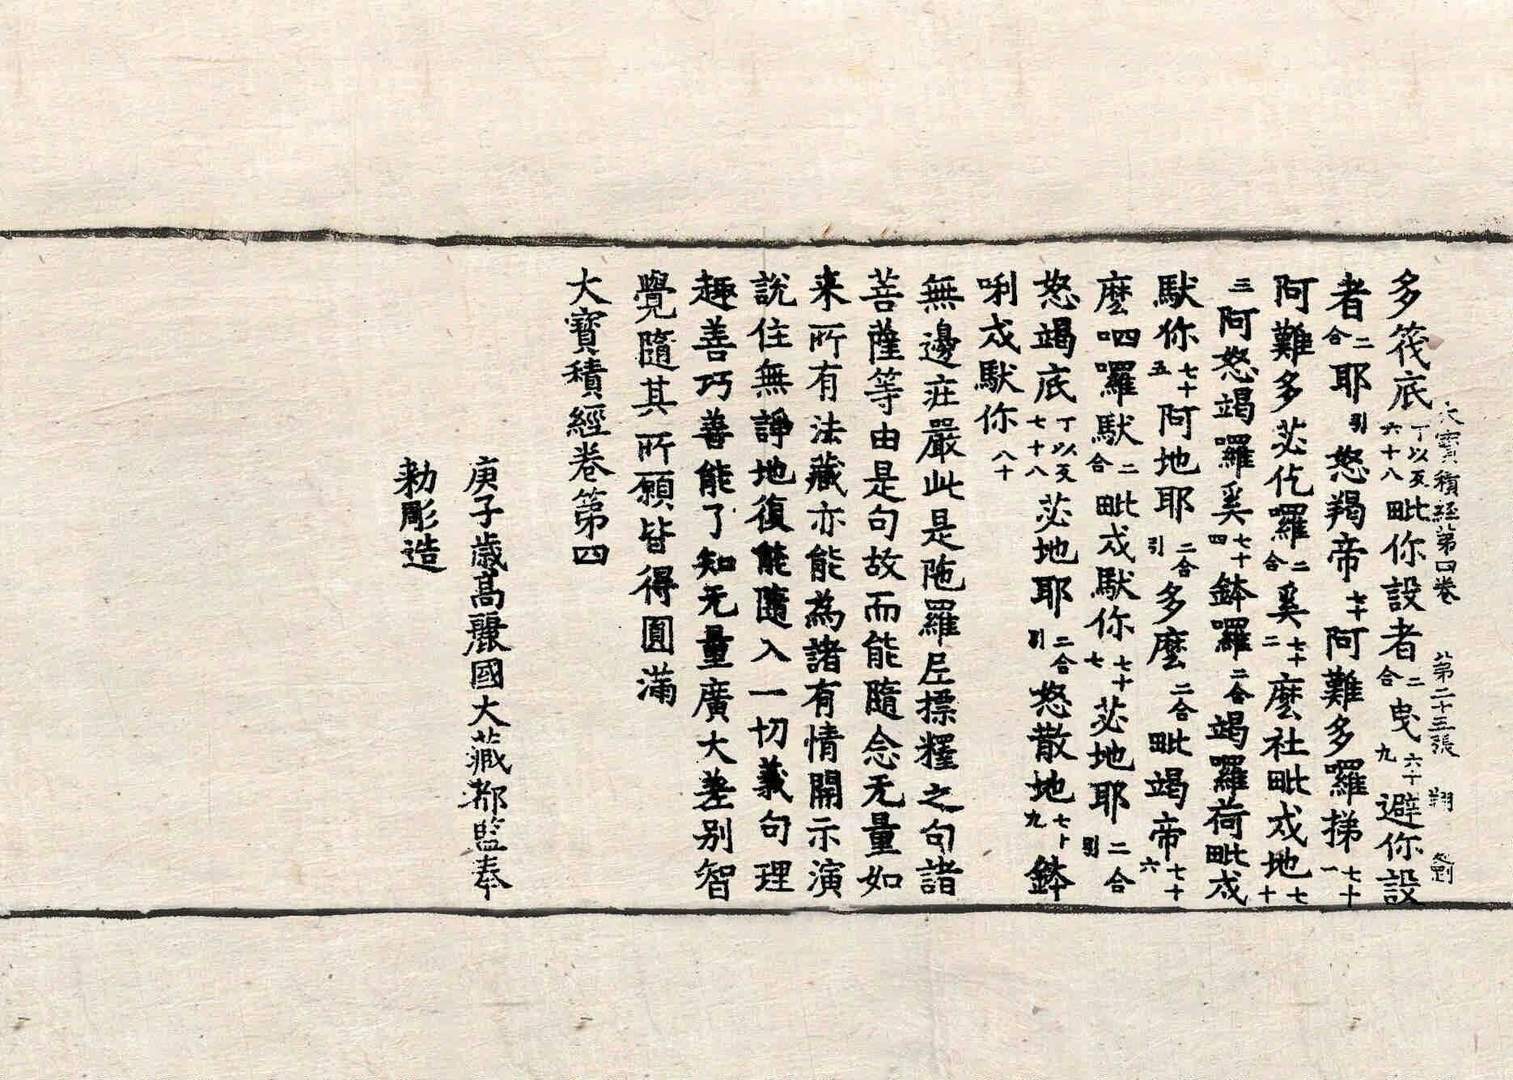 大寶積經第四卷 第二十三張 翔 劉
多筏底丁以反六十八毗你設者二合曳六十九避你設
者二合耶引怒羯帝七十阿難多羅挮七十一
阿難多苾仡囉二合奚七十二麽社毗戍地七十
三阿怒竭囉奚七十四鉢囉二合竭囉荷毗戍
馱你七十五阿地耶二合引多麽二合毗竭帝七十六
麽呬囉馱二合毗戍馱你七十七苾地耶二合引
怒竭底丁以反七十八苾地耶二合引怒散地七十九鉢
唎戍馱你八十
無邊疘嚴此是陁羅尼摽釋之句諸
菩薩等由是句故而能隨念无量如
来所有法藏亦能為諸有情開示演
說住無諍地復能隨入一切義句理
趣善巧善能了知无量廣大差别智
覺隨其所願皆得圓滿
大寶積經卷第四
庚子歲髙麗國大藏都監奉
勅彫造